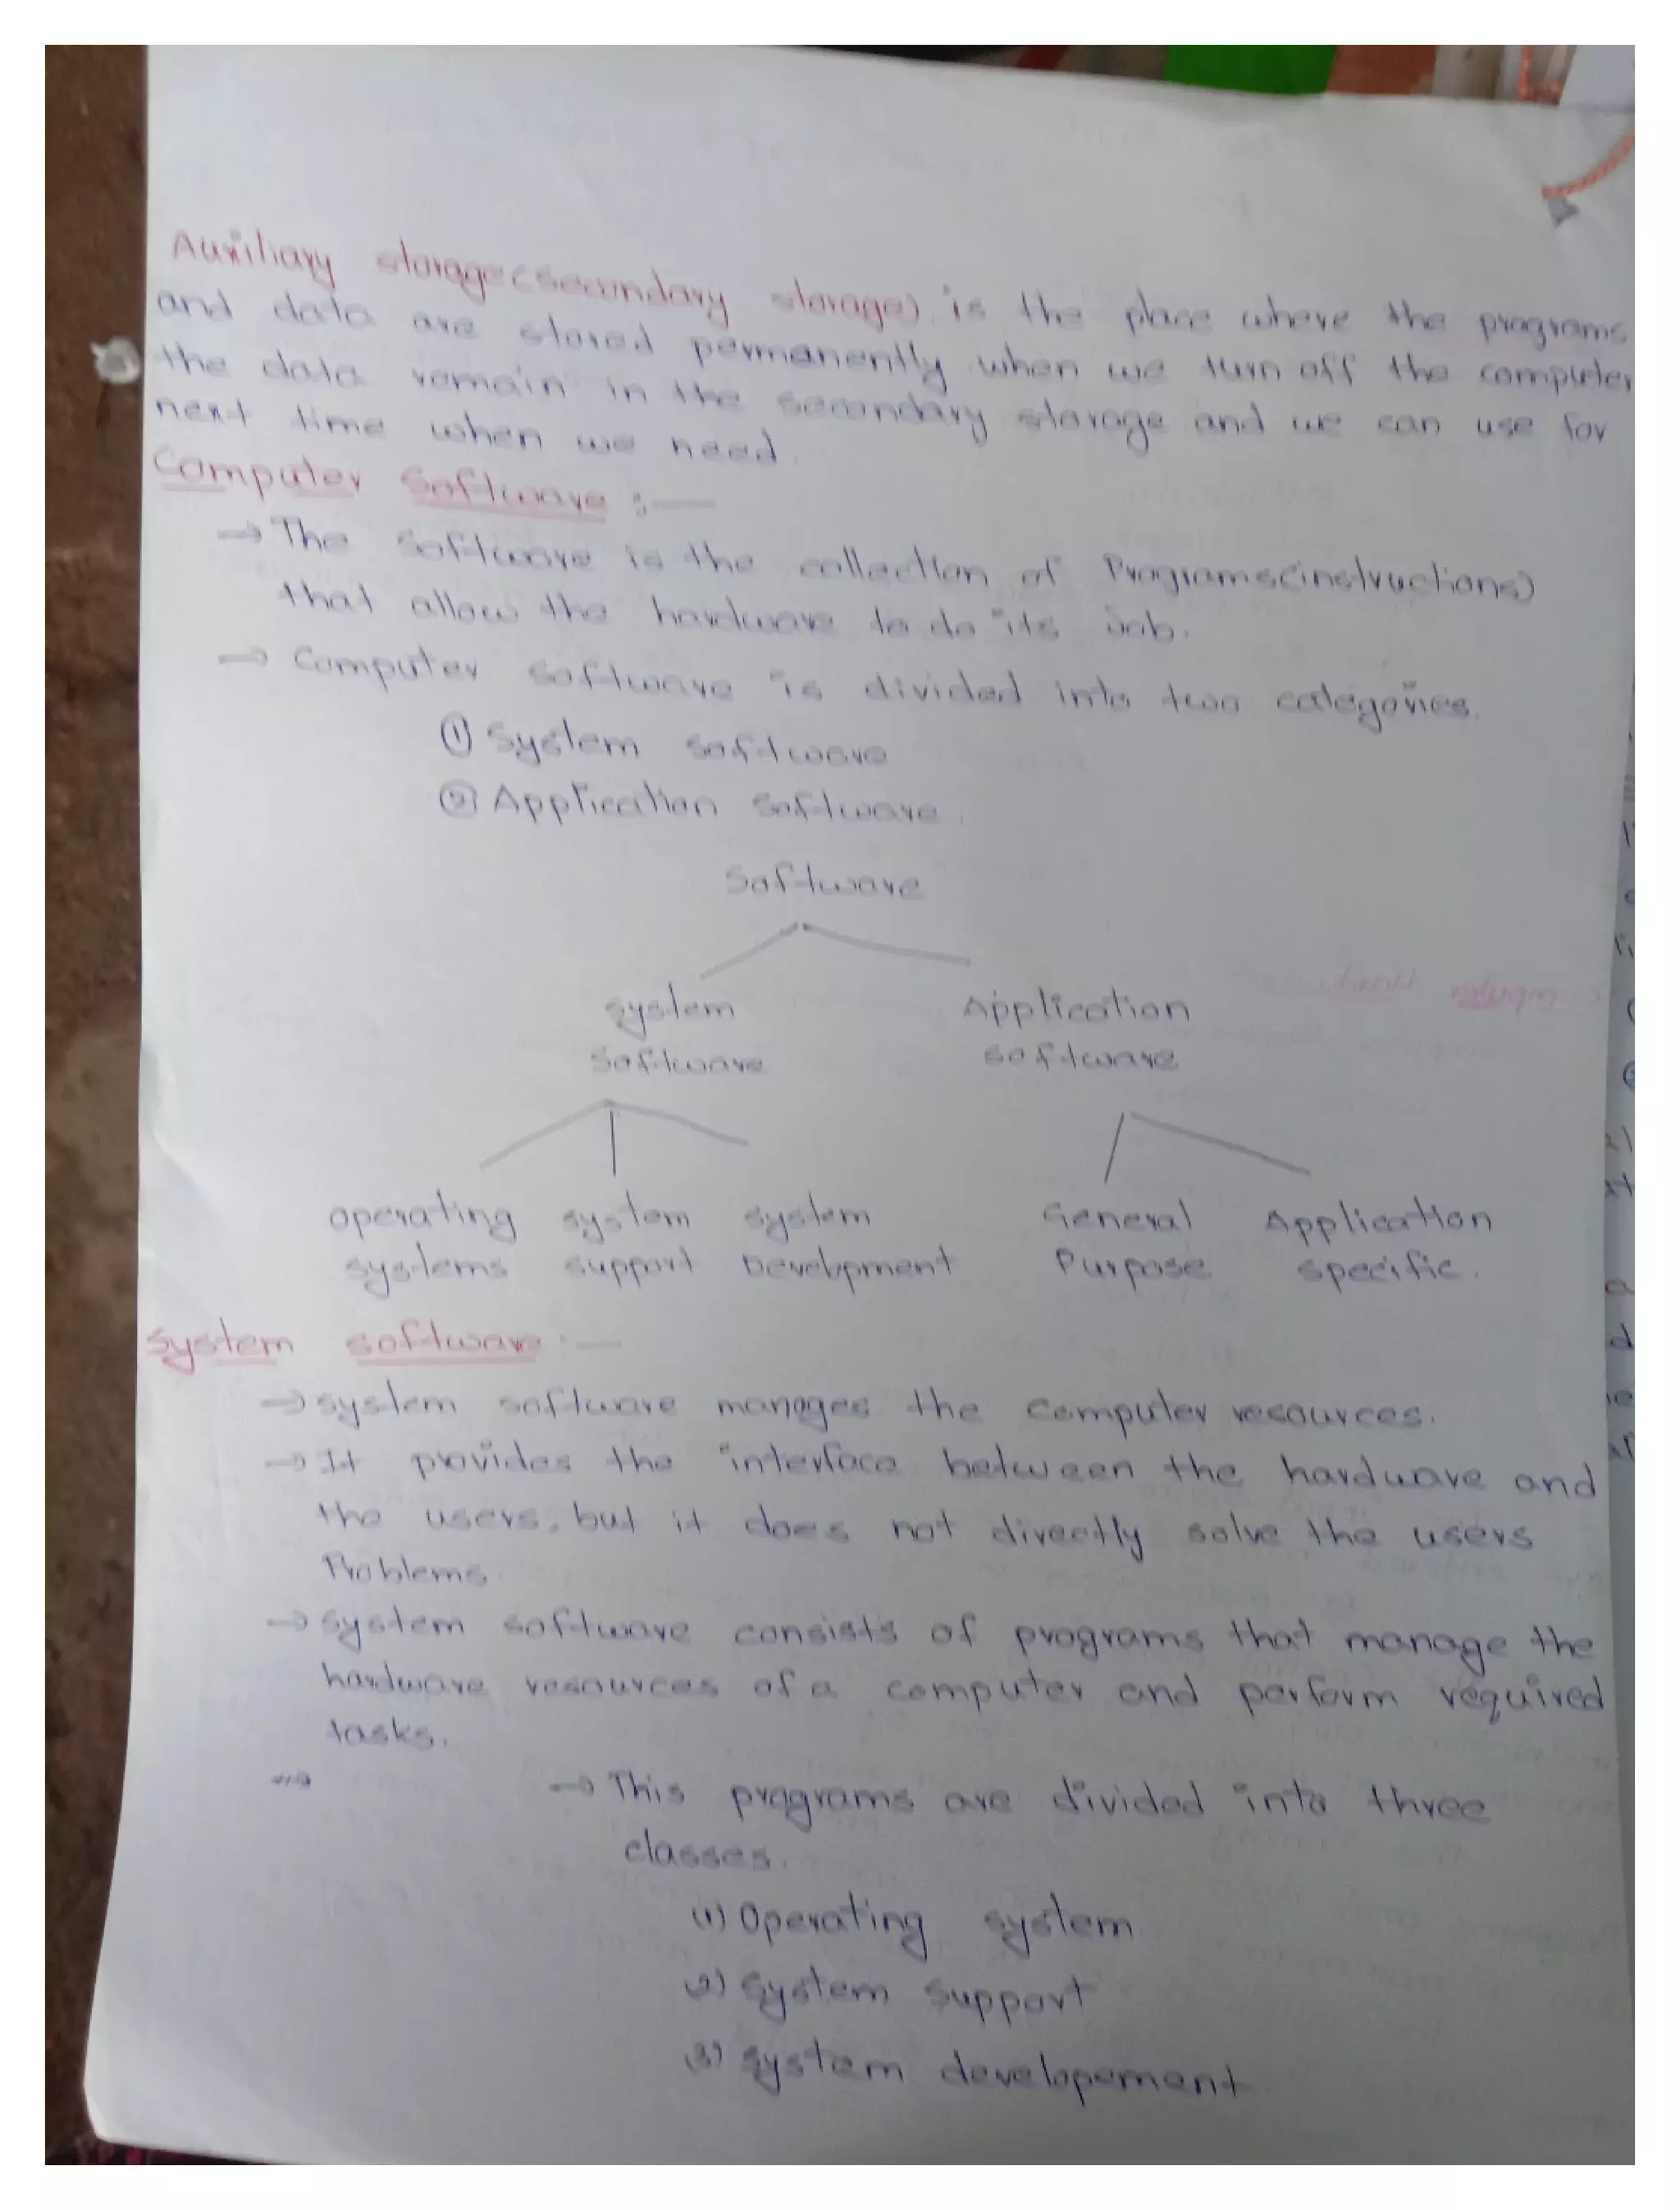 Auxiliary storage(secondary storage) is the place where the programs
and data are stored permanently when we turn off the computer
the data remain in the secondary storage and we can use for
next time when we need.
Computer Software :—
→ The Software is the collection of Programs(instructions)
that allow the hardware to do its Job.
→ Computer software is divided into two categories.
① System software
② Application Software.
Software
system Application
Software software
operating system system General Application
systems support Development Purpose specific.
System software :—
→ system software manages the computer resources.
→ It provides the interface between the hardware and
the users, but it does not directly solve the users
Problems.
→ system software consists of programs that manage the
hardware resources of a computer and perform required
tasks.
→ This programs are divided into three
classes.
(1) Operating system
(2) System Support
(3) System developement